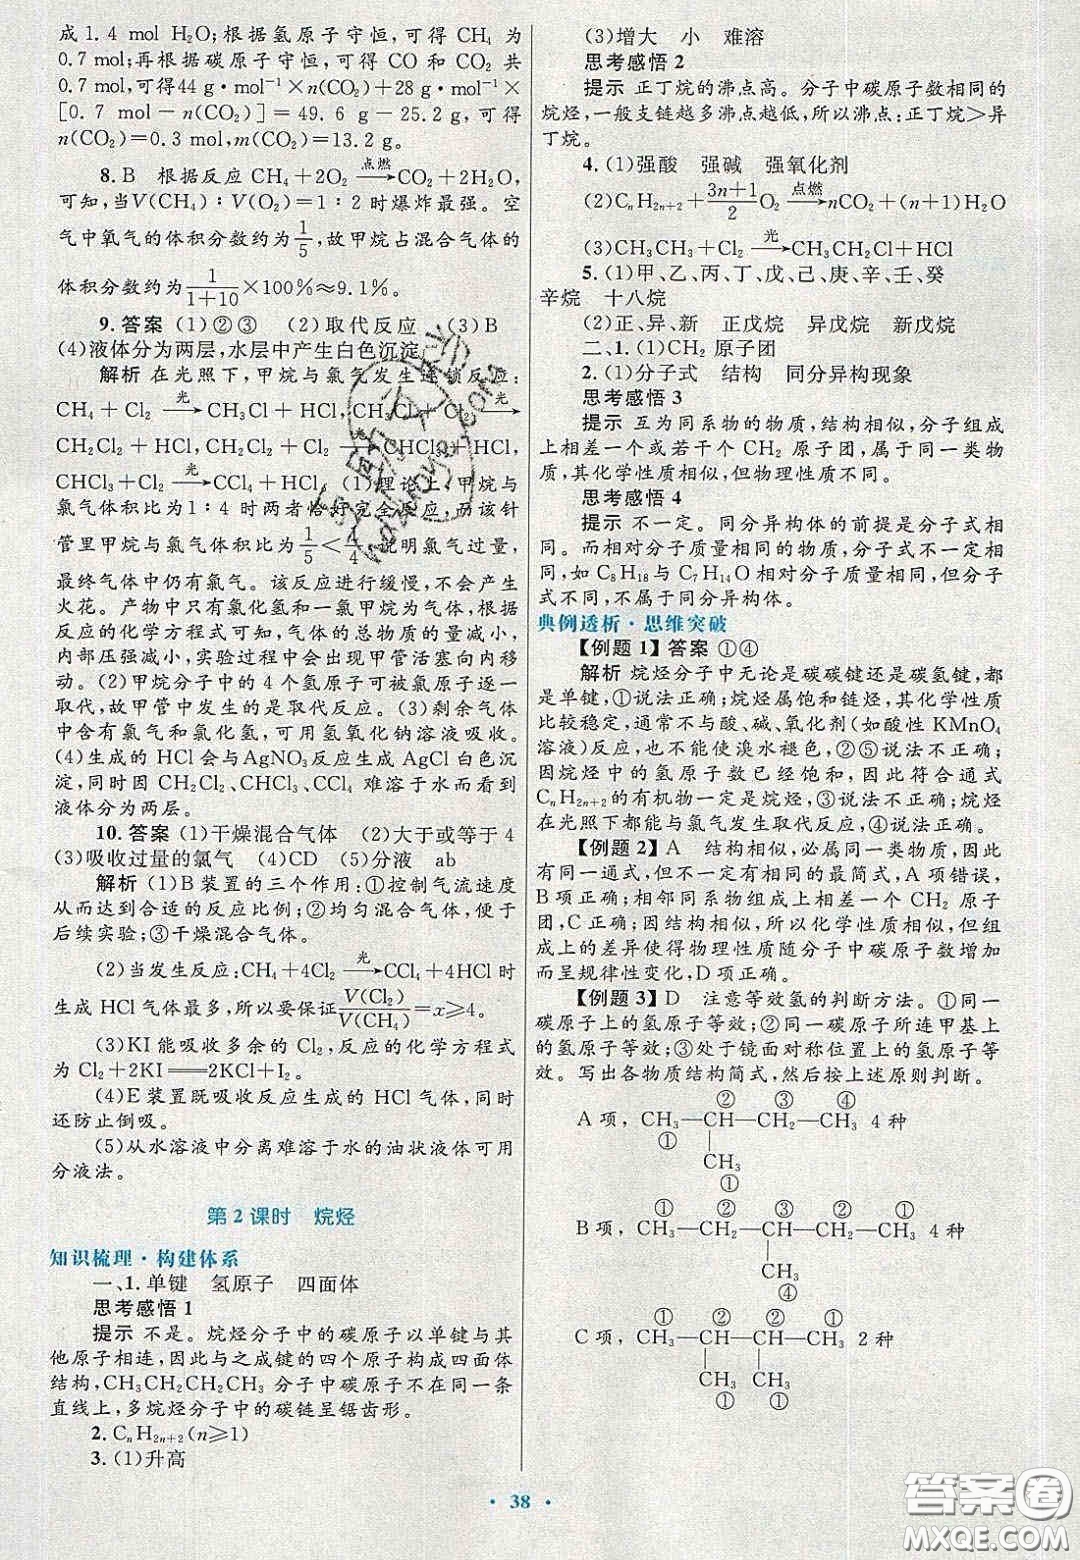 成1.4 mol H₂O;根据氢原子守恒,可得 CH₄ 为
0.7 mol;再根据碳原子守恒,可得 CO 和 CO₂ 共
0.7 mol,可得44 g·mol⁻¹×n(CO₂)+28 g·mol⁻¹×
[0.7 mol－n(CO₂)]＝49.6 g－25.2 g,可得
n(CO₂)＝0.3 mol,m(CO₂)＝13.2 g。
8.B 根据反应 CH₄+2O₂ —点燃→ CO₂+2H₂O,
可知,当V(CH₄)∶V(O₂)＝1∶2时爆炸最强。空
气中氧气的体积分数约为1/5,故甲烷占混合气体的
体积分数约为1/(1+10)×100%≈9.1%。
9.答案 (1)②③ (2)取代反应 (3)B
(4)液体分为两层,水层中产生白色沉淀
解析 在光照下,甲烷与氯气发生连锁反应:
CH₄+Cl₂ —光→ CH₃Cl+HCl,CH₃Cl+Cl₂ —光→
CH₂Cl₂+HCl,CH₂Cl₂+Cl₂ —光→ CHCl₃+HCl,
CHCl₃+Cl₂ —光→ CCl₄+HCl。(1)理论上,甲烷与
氯气体积比为1∶4时两者恰好完全反应,而该针
管里甲烷与氯气体积比为1/5＜1/4,说明氯气过量,
最终气体中仍有氯气。该反应进行缓慢,不会产生
火花。产物中只有氯化氢和一氯甲烷为气体,根据
反应的化学方程式可知,气体的总物质的量减小,
内部压强减小,实验过程会出现甲管活塞向内移
动。(2)甲烷分子中的4个氢原子可被氯原子逐一
取代,故甲管中发生的是取代反应。(3)剩余气体
中含有氯气和氯化氢,可用氢氧化钠溶液吸收。
(4)生成的 HCl 会与AgNO₃反应生成 AgCl 白色沉
淀,同时因 CH₂Cl₂、CHCl₃、CCl₄ 难溶于水而看到
液体分为两层。
10.答案 (1)干燥混合气体 (2)大于或等于4
(3)吸收过量的氯气 (4)CD (5)分液 ab
解析 (1)B装置的三个作用:①控制气流速度
从而达到合适的反应比例;②均匀混合气体,便于
后续实验;③干燥混合气体。
(2)当发生反应:CH₄+4Cl₂ —光→ CCl₄+4HCl时
生成 HCl 气体最多,所以要保证V(Cl₂)/V(CH₄)＝x≥4。
(3)KI能吸收多余的 Cl₂,反应的化学方程式
为 Cl₂+2KI══2KCl+I₂。
(4)E装置既吸收反应生成的 HCl 气体,同时
还防止倒吸。
(5)从水溶液中分离难溶于水的油状液体可用
分液法。
第2课时 烷烃
知识梳理·构建体系
一、1.单键 氢原子 四面体
思考感悟1
提示 不是。烷烃分子中的碳原子以单键与其
他原子相连,因此与之成键的四个原子构成四面体
结构,CH₃CH₂CH₂CH₃ 分子中碳原子不在同一条
直线上,多烷烃分子中的碳链呈锯齿形。
2.CₙH₂ₙ₊₂(n≥1)
3.(1)升高
(3)增大 小 难溶
思考感悟2
提示 正丁烷的沸点高。分子中碳原子数相同的
烷烃,一般支链越多沸点越低,所以沸点:正丁烷＞异
丁烷。
4.(1)强酸 强碱 强氧化剂
(2)CₙH₂ₙ₊₂+(3n+1)/2 O₂ —点燃→ nCO₂+(n+1)H₂O
(3)CH₃CH₃+Cl₂ —光→ CH₃CH₂Cl+HCl
5.(1)甲、乙、丙、丁、戊、己、庚、辛、壬、癸
辛烷 十八烷
(2)正、异、新 正戊烷 异戊烷 新戊烷
二、1.(1)CH₂ 原子团
2.(1)分子式 结构 同分异构现象
思考感悟3
提示 互为同系物的物质,结构相似,分子组成
上相差一个或若干个 CH₂ 原子团,属于同一类物
质,其化学性质相似,但物理性质不同。
思考感悟4
提示 不一定。同分异构体的前提是分子式相
同。而相对分子质量相同的物质,分子式不一定相
同,如 C₈H₁₈与 C₇H₁₄O 相对分子质量相同,但分子
式不同,不属于同分异构体。
典例透析·思维突破
【例题1】答案 ①④
解析 烷烃分子中无论是碳碳键还是碳氢键,都
是单键,①说法正确;烷烃属饱和链烃,其化学性质
比较稳定,通常不与酸、碱、氧化剂(如酸性 KMnO₄
溶液)反应,也不能使溴水褪色,②⑤说法不正确;
因烷烃中的氢原子数已经饱和,因此符合通式
CₙH₂ₙ₊₂的有机物一定是烷烃,③说法不正确;烷烃
在光照下都能与氯气发生取代反应,④说法正确。
【例题2】A 结构相似,必属同一类物质,因此
有同一通式,但不一定有相同的最简式,A项错误,
B项正确;相邻同系物组成上相差一个 CH₂ 原子
团,C正确;因结构相似,所以化学性质相似,但组
成上的差异使得物理性质随分子中碳原子数增加
而呈规律性变化,D项正确。
【例题3】D 注意等效氢的判断方法。①同一
碳原子上的氢原子等效;②同一碳原子所连甲基上
的氢原子等效;③处于镜面对称位置上的氢原子等
效。写出各物质结构简式,然后按上述原则判断。
② ③ ④
A项,CH₃—CH—CH₂—CH₃ 4种
①
CH₃
①
① ② ③ ② ①
B项,CH₃—CH₂—CH—CH₂—CH₃ 4种
CH₃
④
① ② ② ①
C项,CH₃—CH—CH—CH₃ 2种
CH₃ CH₃
① ①
· 38 ·
答案圈
MXQE.COM